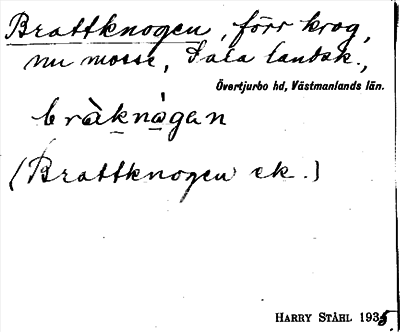 Brattknogen, förr krog,
nu mosse, Sala landsk.,
Övertjurbo hd, Västmanlands län.
bràknágan
(Brattknogen ek.)
HARRY STÅHL 1935.